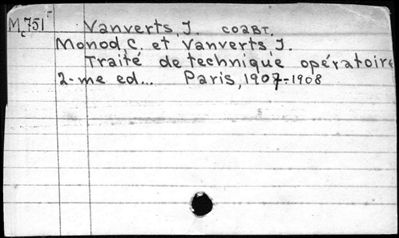 М751 Vanverts, J. соавт.
Monod, C. et Vanverts J.
Traité de technique opératoire
2-me ed... Paris, 1907-1908